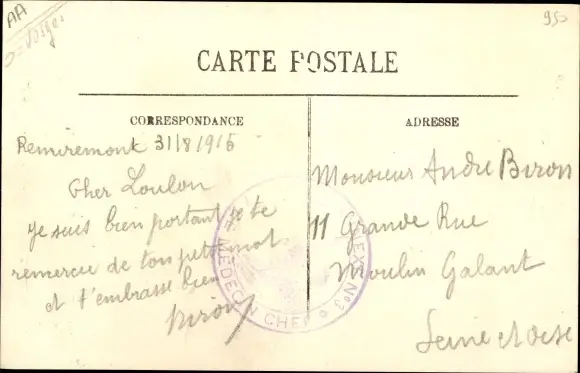 AA
Vosges
950
CARTE POSTALE
CORRESPONDANCE
Remiremont 31/8/1915
Cher Loulou
Je suis bien portant je te
remercie de ton petit mot
et t'embrasse bien
Biron
ADRESSE
Monsieur André Biron
11 Grande Rue
Moulin Galant
Seine et Oise
MEDECIN CHEF
ANNEXE N°3